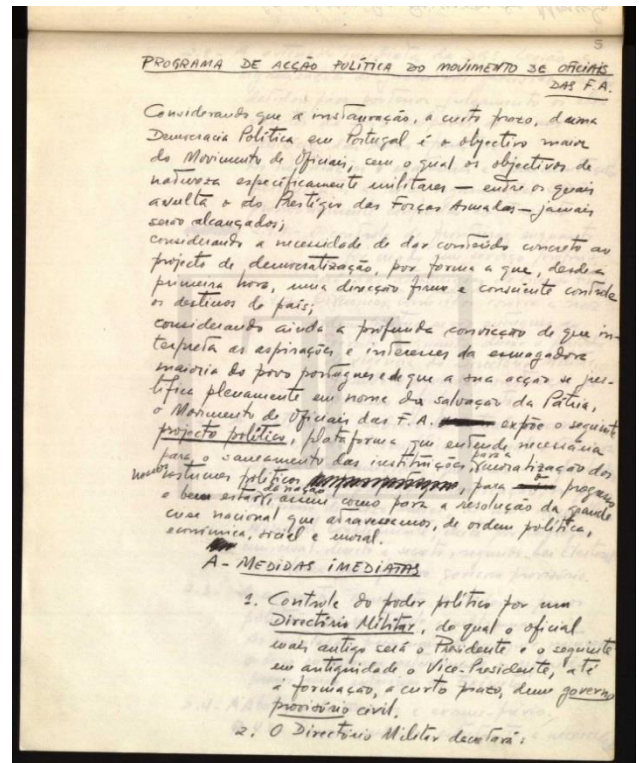 5
PROGRAMA DE ACÇÃO POLÍTICA DO MOVIMENTO DE OFICIAIS
DAS F.A.
Considerando que a instauração, a curto prazo, duma
Democracia Política em Portugal é o objectivo maior
do Movimento de Oficiais, sem o qual os objectivos de
natureza especificamente militares — entre os quais
avulta o do Prestígio das Forças Armadas — jamais
serão alcançados;
considerando a necessidade de dar conteúdo concreto ao
projecto de democratização, por forma a que, desde a
primeira hora, uma direcção firme e consciente controle
os destinos do país;
considerando ainda a profunda convicção de que in-
terpreta as aspirações e interesses da esmagadora
maioria do povo português e de que a sua acção se jus-
tifica plenamente em nome da salvação da Pátria,
o Movimento de Oficiais das F.A. expõe o seguinte
projecto político, plataforma que entende necessária
para o saneamento das instituições, para a moratização dos
nossos costumes políticos, para o progresso
e bem estar da nação, assim como para a resolução da grande
crise nacional que atravessamos, de ordem política,
económica, social e moral.
A - MEDIDAS IMEDIATAS
1. Controle do poder político por um
Directório Militar, do qual o oficial
mais antigo será o Presidente e o seguinte
em antiguidade o Vice-Presidente, até
à formação, a curto prazo, dum governo
provisório civil.
2. O Directório Militar decretará: